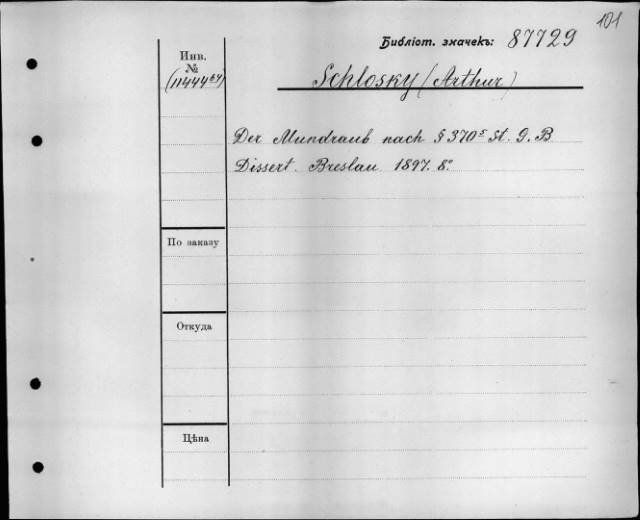 101
Библіот. значекъ: 87729
Инв.
№
(11444⁶⁴)
Schlosky (Arthur)
Der Mundraub nach § 370⁵ St. G. B
Dissert. Breslau 1897. 8°
По заказу
Откуда
Цѣна